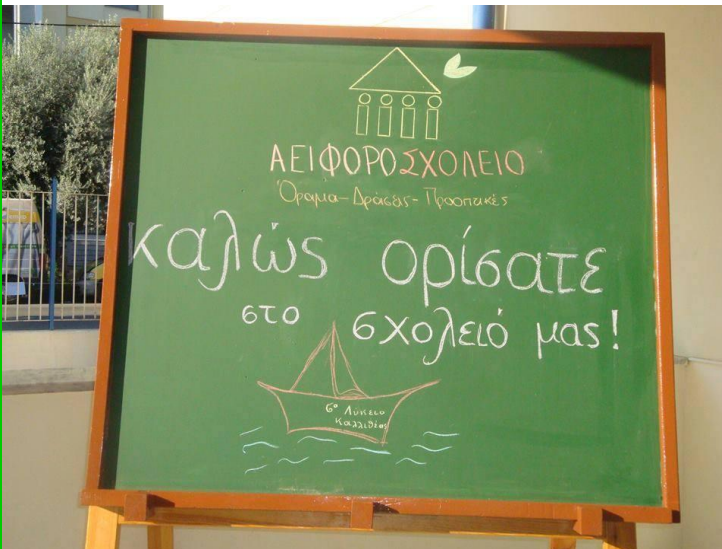 ΑΕΙΦΟΡΟ ΣΧΟΛΕΙΟ
Όραμα - Δράσεις - Προοπτικές
Καλώς ορίσατε
στο σχολειό μας!
6ο Λύκειο
Καλλιθέας